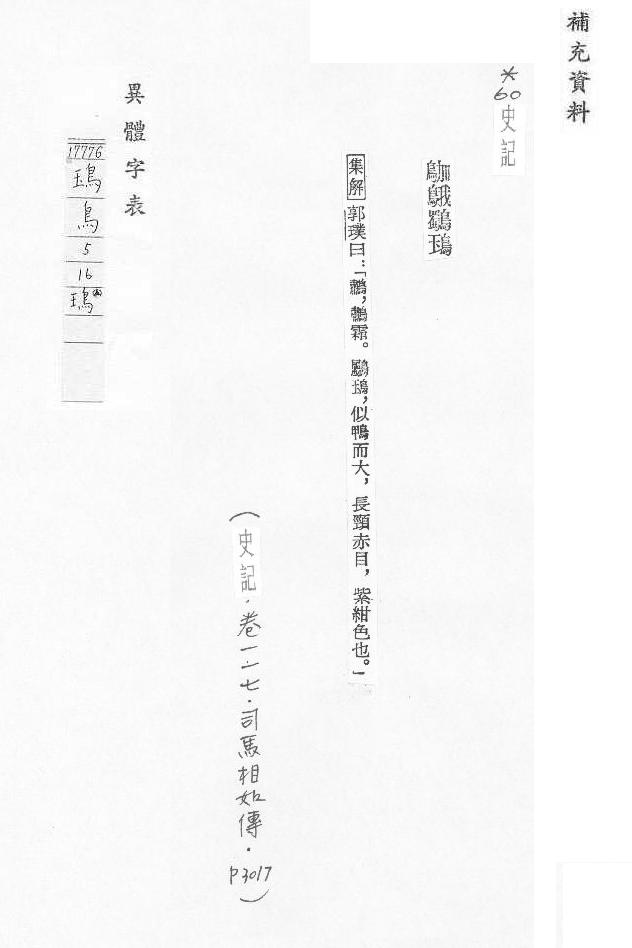 補充資料
*60 史記
鴐鵝鸀鳿
集解 郭璞曰：「鷫，鷫霜。鸀鳿，似鴨而大，長頸赤目，紫紺色也。」
（史記．卷一一七．司馬相如傳．P3017）
異體字表
17776
鳿
鳥
5
16
鳿